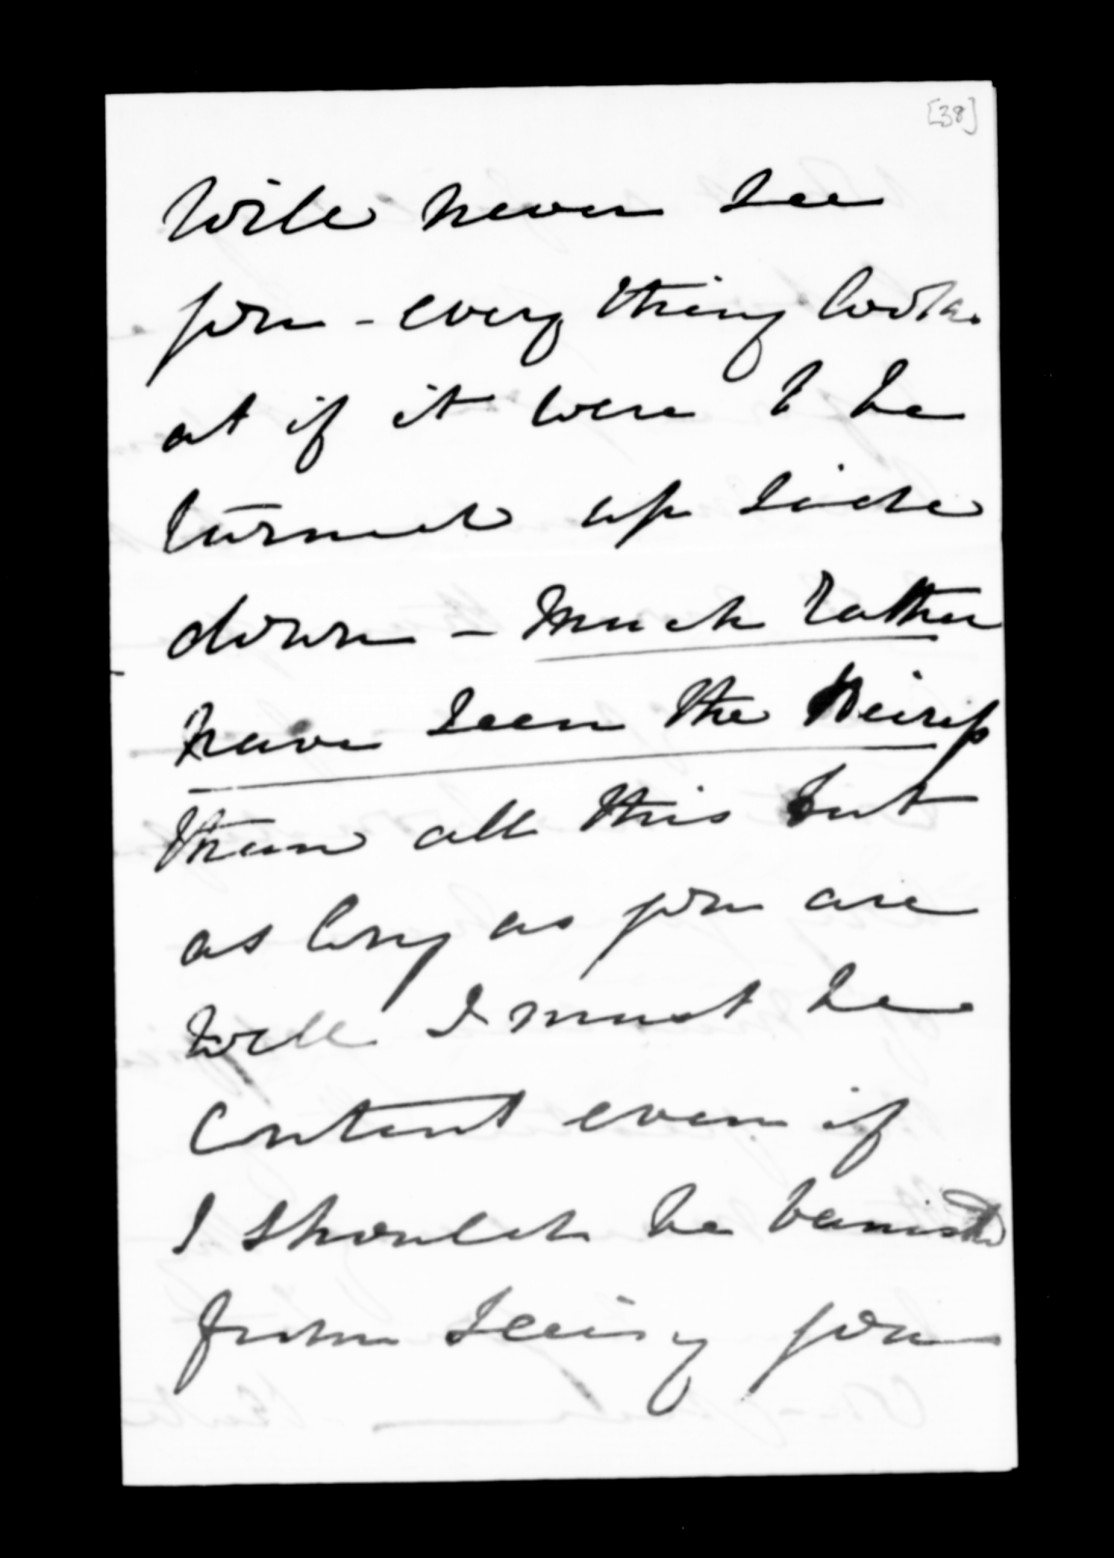 [38]
Will never see
you - every thing looks
at if it were to be
turned up side
down - Much rather
have seen the
than all this but
as long as you are
well I must be
content even if
I should be banished
from seeing you